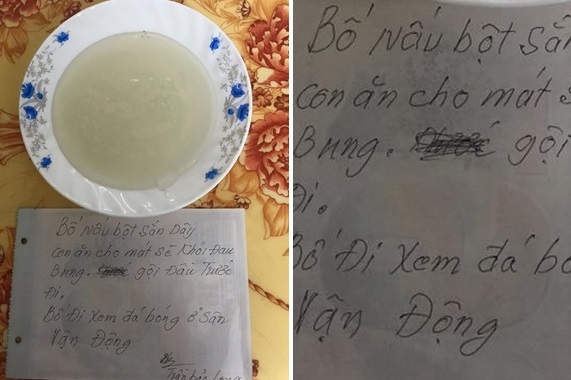 Bố Nấu bột Sắn Dây
con ăn cho mát sẽ Khỏi Đau
Bụng. gội Đầu Trước
Đi.
Bố Đi Xem đá bóng ở Sân
Vận Động
Bố Nấu bột Sắn
con ăn cho mát
Bụng. gội
Đi.
Bố Đi Xem đá bó
Vận Động